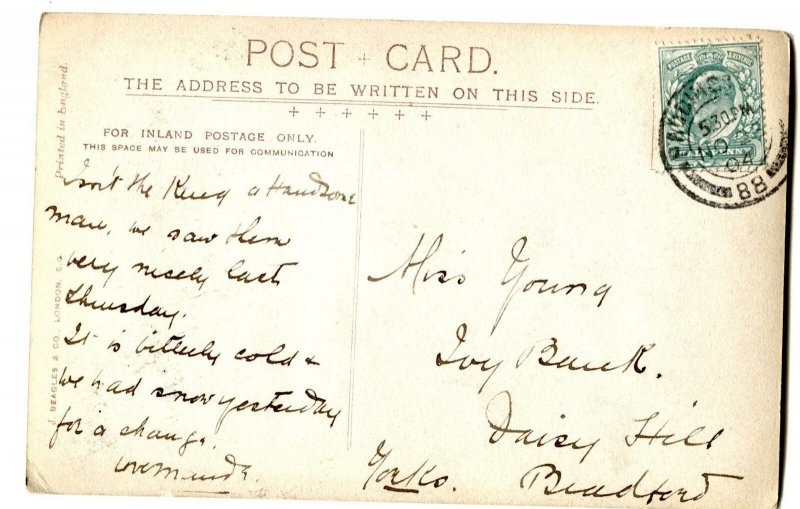 POST CARD.
THE ADDRESS TO BE WRITTEN ON THIS SIDE.
FOR INLAND POSTAGE ONLY.
THIS SPACE MAY BE USED FOR COMMUNICATION
Printed in England.
J. BEAGLES & CO., LONDON, E.C.
Isn't the King a Handsome
man, we saw them
very nicely last
Thursday.
It is bitterly cold &
we had snow yesterday
for a change.
Love
Miss Young
Ivy Bank.
Daisy Hill
Yorks. Bradford
POSTAGE & REVENUE
HALFPENNY
5.30 PM
NO
04
88